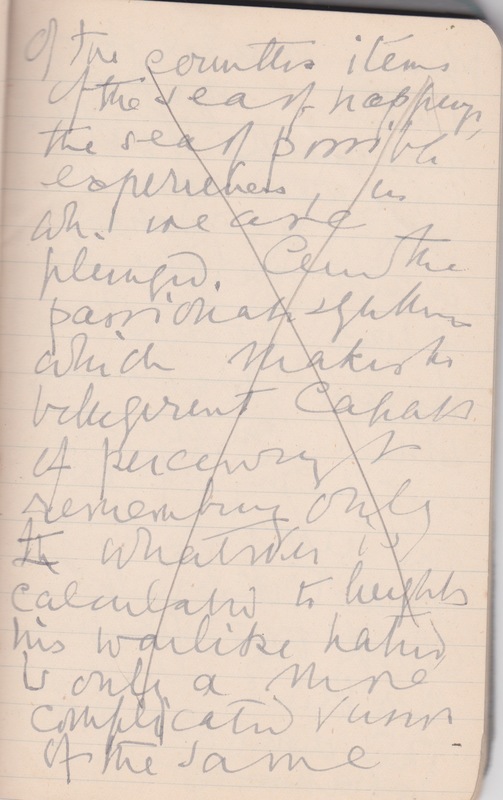 of the countless items
of the sea of happenings,
the sea of possible
experiences, in
wh. we are
plunged. And the
passionate selection
which makes the
belligerent capable
of perceiving &
remembering only
whatever is
calculated to heighten
his warlike hatred
is only a more
complicated version
of the same